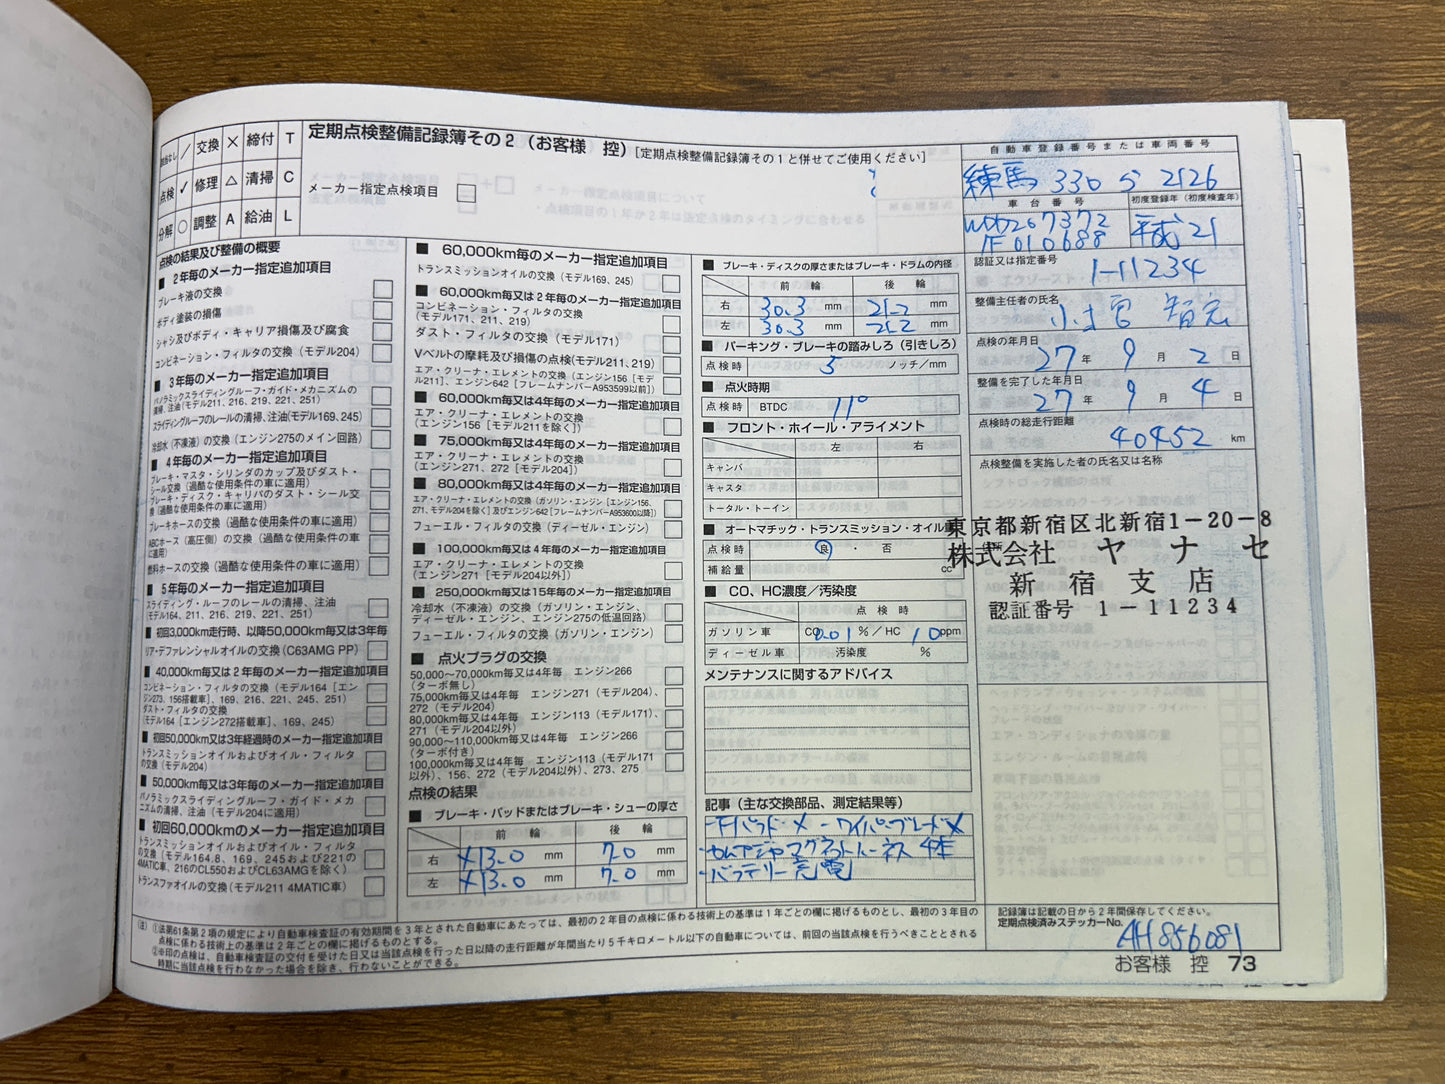 点検 ✓ 交換 × 締付 T
修理 △ 清掃 C
分解 ○ 調整 A 給油 L
定期点検整備記録簿その2（お客様 控）[定期点検整備記録簿その1と併せてご使用ください]
メーカー指定点検項目
点検の結果及び整備の概要
■ 2年毎のメーカー指定追加項目
ブレーキ液の交換
ボディ塗装の損傷
シャシ及びボディ・キャリア損傷及び腐食
コンビネーション・フィルタの交換（モデル204）
■ 3年毎のメーカー指定追加項目
パノラミックスライディングルーフ・ガイド・メカニズムの
清掃、注油（モデル211、216、219、221、251）
スライディングルーフのレールの清掃、注油（モデル169、245）
冷却水（不凍液）の交換（エンジン275のメイン回路）
■ 4年毎のメーカー指定追加項目
ブレーキ・マスタ・シリンダのカップ及びダスト・
シール交換（過酷な使用条件の車に適用）
ブレーキ・ディスク・キャリパのダスト・シール交
換（過酷な使用条件の車に適用）
ブレーキホースの交換（過酷な使用条件の車に適用）
ABCホース（高圧側）の交換（過酷な使用条件の車に適用）
燃料ホースの交換（過酷な使用条件の車に適用）
■ 5年毎のメーカー指定追加項目
スライディング・ルーフのレールの清掃、注油
（モデル164、211、216、219、221、251）
■ 初回3,000km走行時、以降50,000km毎又は3年毎
リア・デファレンシャルオイルの交換（C63AMG PP）
■ 40,000km毎又は2年毎のメーカー指定追加項目
コンビネーション・フィルタの交換（モデル164［エン
ジン273、156搭載車］、169、216、221、245、251）
ダスト・フィルタの交換
（モデル164［エンジン272搭載車］、169、245）
■ 初回50,000km又は3年経過時のメーカー指定追加項目
トランスミッションオイルおよびオイル・フィルタ
の交換（モデル204）
■ 50,000km毎又は3年毎のメーカー指定追加項目
パノラミックスライディングルーフ・ガイド・メカ
ニズムの清掃、注油（モデル204に適用）
■ 初回60,000kmのメーカー指定追加項目
トランスミッションオイルおよびオイル・フィルタ
の交換（モデル164.8、169、245および221の
4MATIC車、216のCL550およびCL63AMGを除く）
トランスファオイルの交換（モデル211 4MATIC車）
■ 60,000km毎のメーカー指定追加項目
トランスミッションオイルの交換（モデル169、245）
■ 60,000km毎又は2年毎のメーカー指定追加項目
コンビネーション・フィルタの交換
（モデル171、211、219）
ダスト・フィルタの交換（モデル171）
Vベルトの摩耗及び損傷の点検（モデル211、219）
エア・クリーナ・エレメントの交換（エンジン156［モデ
ル211］、エンジン642［フレームナンバーA953599以前］）
■ 60,000km毎又は4年毎のメーカー指定追加項目
エア・クリーナ・エレメントの交換
（エンジン156［モデル211を除く］）
■ 75,000km毎又は4年毎のメーカー指定追加項目
エア・クリーナ・エレメントの交換
（エンジン271、272［モデル204］）
■ 80,000km毎又は4年毎のメーカー指定追加項目
エア・クリーナ・エレメントの交換（ガソリン・エンジン［エンジン156、
271、モデル204を除く］及びエンジン642［フレームナンバーA953600以降］）
フューエル・フィルタの交換（ディーゼル・エンジン）
■ 100,000km毎又は4年毎のメーカー指定追加項目
エア・クリーナ・エレメントの交換
（エンジン271［モデル204以外］）
■ 250,000km毎又は15年毎のメーカー指定追加項目
冷却水（不凍液）の交換（ガソリン・エンジン、
ディーゼル・エンジン、エンジン275の低温回路）
フューエル・フィルタの交換（ガソリン・エンジン）
■ 点火プラグの交換
50,000～70,000km毎又は4年毎 エンジン266
（ターボ無し）
75,000km毎又は4年毎 エンジン271（モデル204）、
272（モデル204）
80,000km毎又は4年毎 エンジン113（モデル171）、
271（モデル204以外）
90,000～110,000km毎又は4年毎 エンジン266
（ターボ付き）
100,000km毎又は4年毎 エンジン113（モデル171
以外）、156、272（モデル204以外）、273、275
点検の結果
■ ブレーキ・パッドまたはブレーキ・シューの厚さ
前 輪 後 輪
右 ×13.0 mm 7.0 mm
左 ×13.0 mm 7.0 mm
■ ブレーキ・ディスクの厚さまたはブレーキ・ドラムの内径
前 輪 後 輪
右 30.3 mm 21.2 mm
左 30.3 mm 21.2 mm
■ パーキング・ブレーキの踏みしろ（引きしろ）
点検時 5 ノッチ/mm
■ 点火時期
点検時 BTDC 11°
■ フロント・ホイール・アライメント
左 右
キャンバ
キャスタ
トータル・トーイン
■ オートマチック・トランスミッション・オイル量
点検時 良 ・ 否
補給量 cc
■ CO、HC濃度／汚染度
点 検 時
ガソリン車 CO 0.01 %／HC 10 ppm
ディーゼル車 汚染度 %
メンテナンスに関するアドバイス
記事（主な交換部品、測定結果等）
-Fパッド × -ワイパーブレード×
-カムアジャマグネットハーネス 4本
-バッテリー充電
自動車登録番号または車両番号
練馬 330 ら 2126
車 台 番 号 初度登録年（初度検査年）
WDD2073722
1F010688 平成21
認証又は指定番号
1-11234
整備主任者の氏名
点検の年月日
27 年 9 月 2 日
整備を完了した年月日
27 年 9 月 4 日
点検時の総走行距離
40452 km
点検整備を実施した者の氏名又は名称
東京都新宿区北新宿1-20-8
株式会社 ヤナセ
新宿支店
認証番号 1-11234
記録簿は記載の日から2年間保存してください。
定期点検済みステッカーNo.
AH856081
（注）①法第61条第2項の規定により自動車検査証の有効期間を3年とされた自動車にあたっては、最初の2年目の点検に係わる技術上の基準は1年ごとの欄に掲げるものとし、最初の3年目の
点検に係わる技術上の基準は2年ごとの欄に掲げるものとする。
②※印の点検は、自動車検査証の交付を受けた日又は当該点検を行った日以降の走行距離が年間当たり5千キロメートル以下の自動車については、前回の当該点検を行うべきこととされる
時期に当該点検を行わなかった場合を除き、行わないことができる。
お客様 控 73